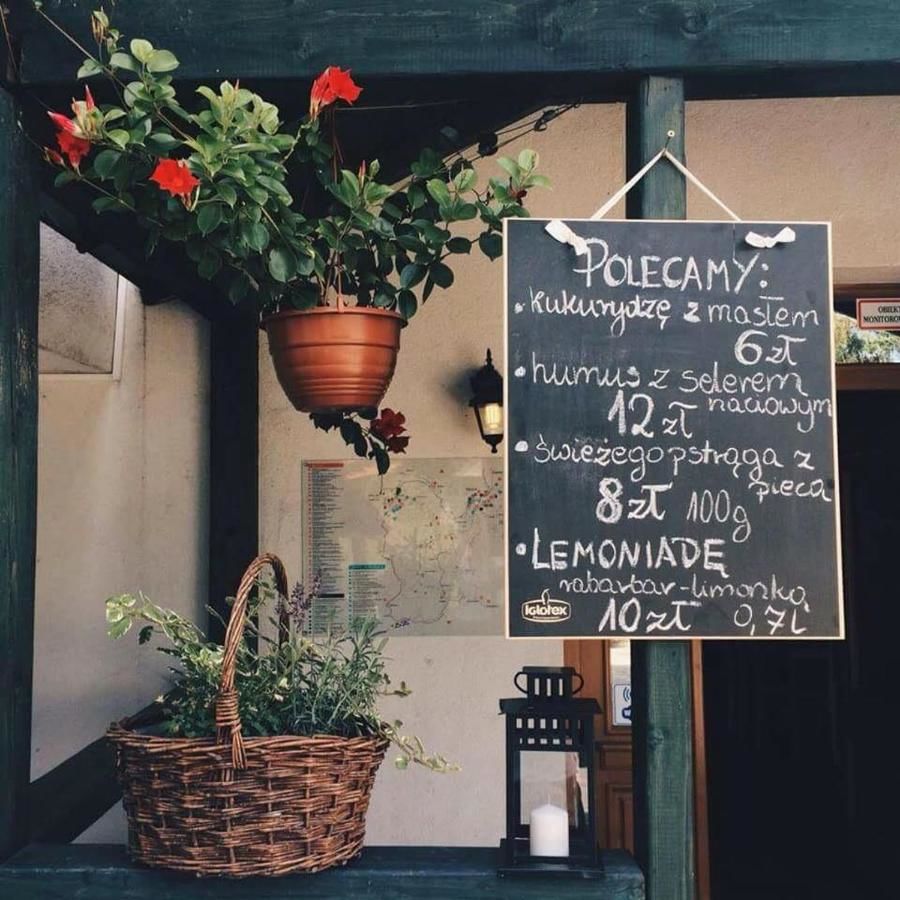 POLECAMY:
• kukurydzę z masłem
6 zł
• humus z selerem
naciowym
12 zł
• świeżego pstrąga z
pieca
8 zł 100g
• LEMONIADĘ
rabarbar-limonka
10 zł 0,7l
Iglotex
OBIEKT